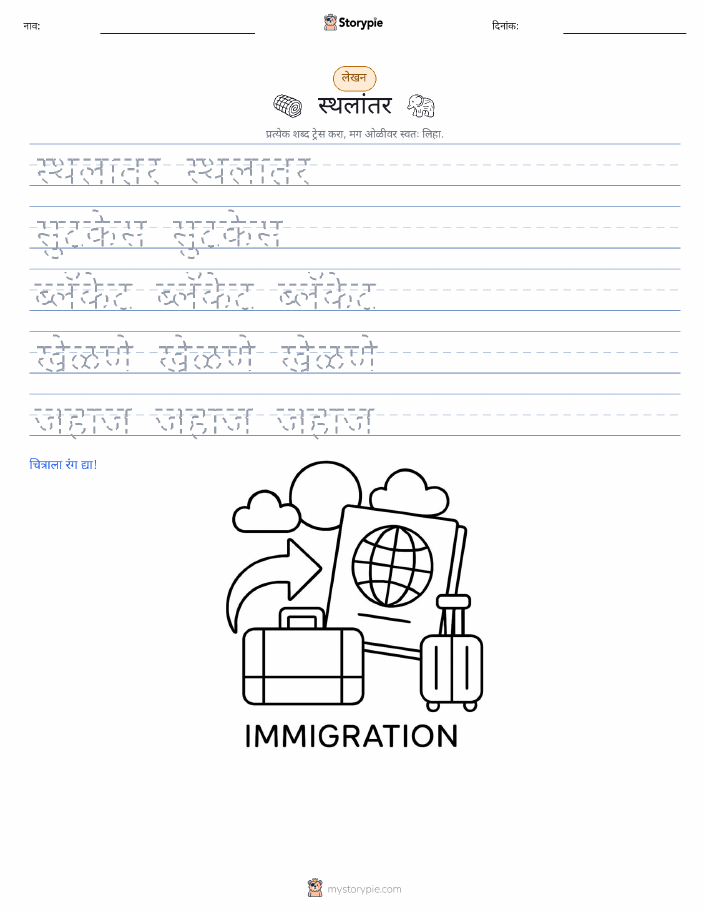 नाव: Storypie दिनांक:
लेखन
स्थलांतर
प्रत्येक शब्द ट्रेस करा, मग ओळीवर स्वतः लिहा.
स्थलांतर स्थलांतर
सुटकेस सुटकेस
ब्लँकेट ब्लँकेट ब्लँकेट
खेळणे खेळणे खेळणे
जहाज जहाज जहाज
चित्राला रंग द्या!
IMMIGRATION
mystorypie.com